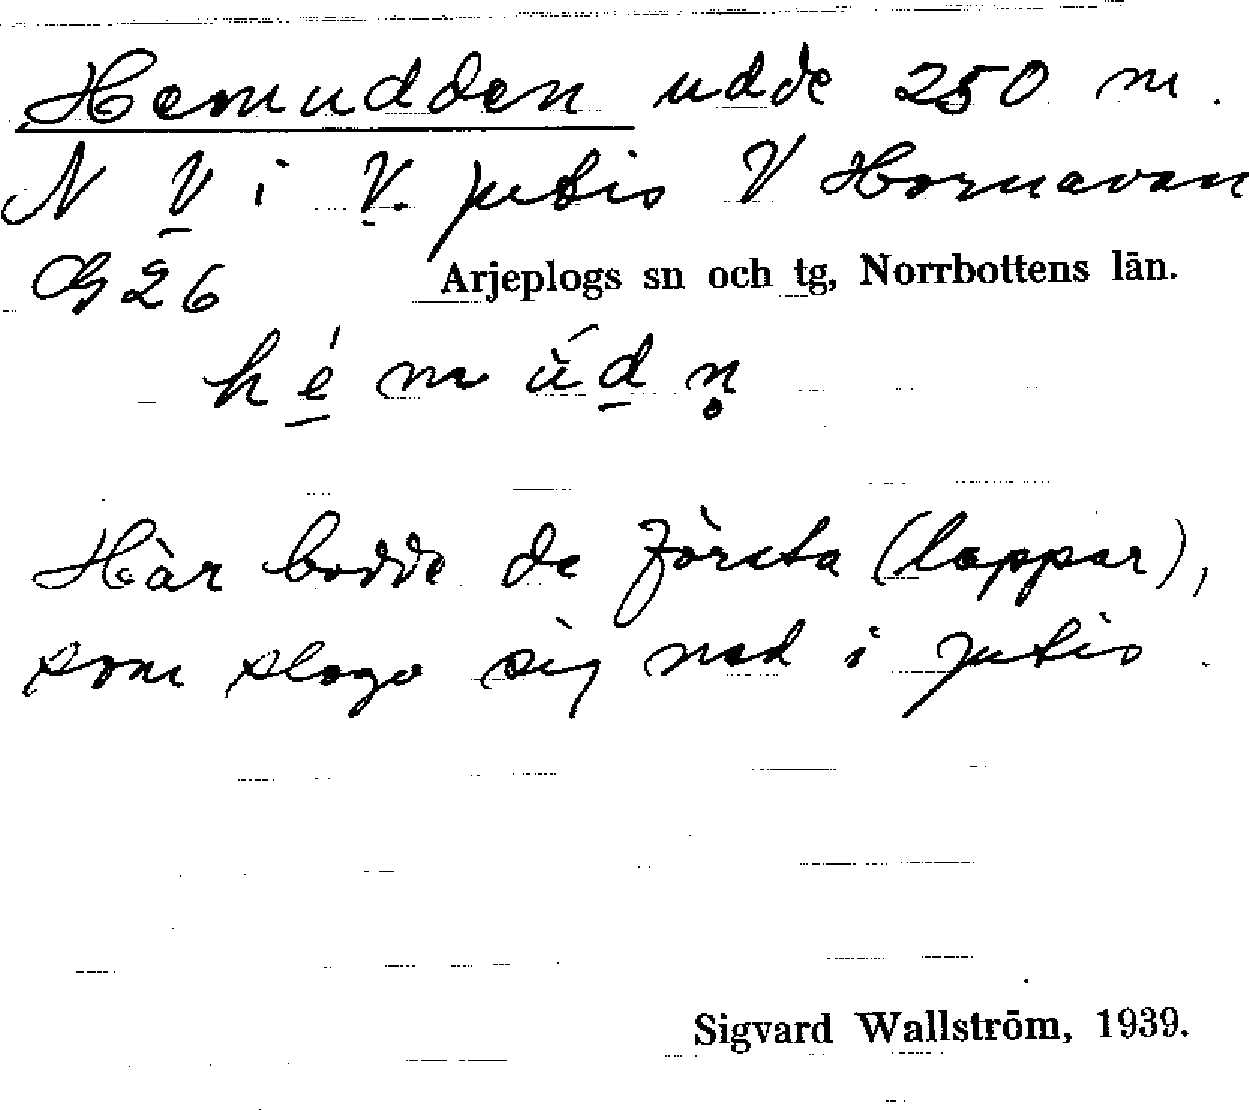 Hemudden udde 250 m.
N V i V. Jutis V Hornavan
G 26 Arjeplogs sn och tg, Norrbottens län.
Här bodde de första (lappar),
som slogo sig ned i Jutis.
Sigvard Wallström, 1939.